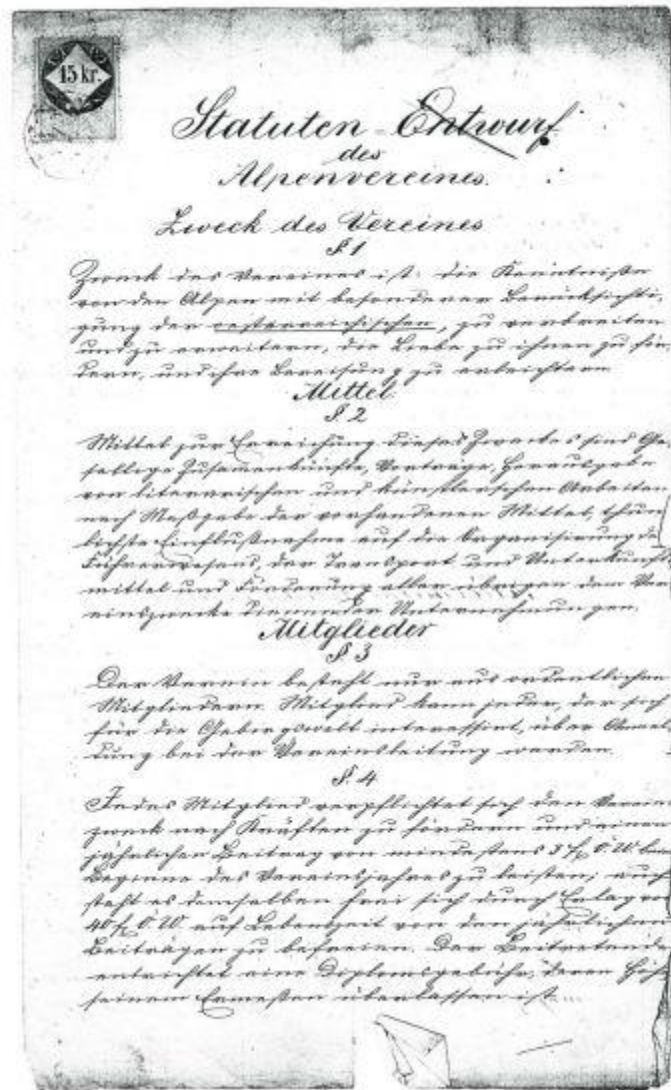 15 kr.
Statuten-Entwurf
des
Alpenvereines.
Zweck des Vereines
§. 1
Zweck des Vereines ist: die Kenntniße
von den Alpen mit besonderer Berücksichti
gung der oesterreichischen, zu verbreiten
und zu erweitern, die Liebe zu ihnen zu för
dern, und ihre Bereisung zu erleichtern.
Mittel.
§. 2
Mittel zur Erreichung dieses Zweckes sind Ge
sellige Zusamenkünfte, Vorträge, Herausgabe
von literarischen und künstlerischen Arbeiten
nach Maßgabe der vorhandenen Mittel, thun
lichste Einflußnahme auf die Organisirung de
Führerwesens, der Transport und Unterkunfts
mittel und Förderung aller übrigen dem Ver
einszwecke dienender Unternehmungen.
Mitglieder
§. 3
Der Verein besteht nur aus ordentlichen
Mitgliedern. Mitglied kann jeder, der sich
für die Gebirgswelt interessirt, über Anmel
dung bei der Vereinsleitung werden.
§. 4
Jedes Mitglied verpflichtet sich den Vereins
zweck nach Kräften zu fördern und einen
jährlichen Beitrag von mindestens 3 f. Ö.W. beim
Beginne des Vereinsjahres zu leisten; auch
steht es demselben frei sich durch Erlag von
40 f. Ö.W. auf Lebenszeit von den jährlichen
Beiträgen zu befreien. Der Beitretende
entrichtet eine Diplomsgebühr, deren Höhe
seinem Ermeßen überlassen ist.